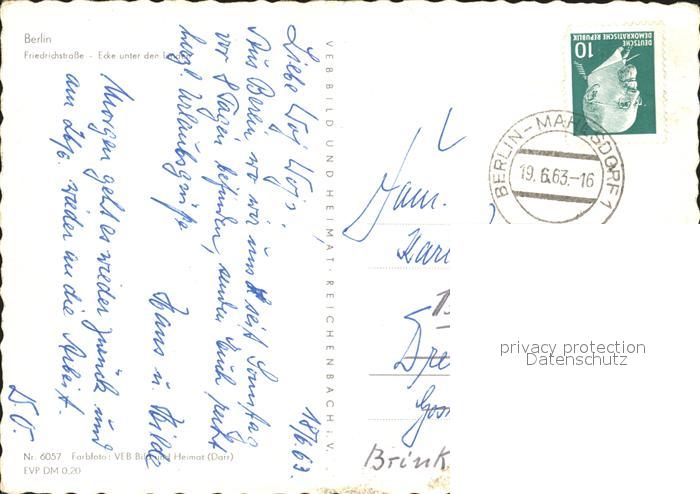 Berlin
Friedrichstraße - Ecke unter den
18/6.63.
Liebe
Aus Berlin, wo wir uns seit Sonntag
vor 8 Tagen befinden, senden Euch recht
herzl. Urlaubsgrüße
Hans u. Hilde
Morgen geht es wieder zurück und
am wieder an die Arbeit.
D.O.
VEB BILD UND HEIMAT · REICHENBACH i. V.
DEUTSCHE
DEMOKRATISCHE REPUBLIK
10
BERLIN-MAHLSDORF 1
19.6.63.-16
Fam.
Kar
Dre
Brink
privacy protection
Datenschutz
Nr. 6057 Farbfoto: VEB Bild und Heimat (Darr)
EVP DM 0,20